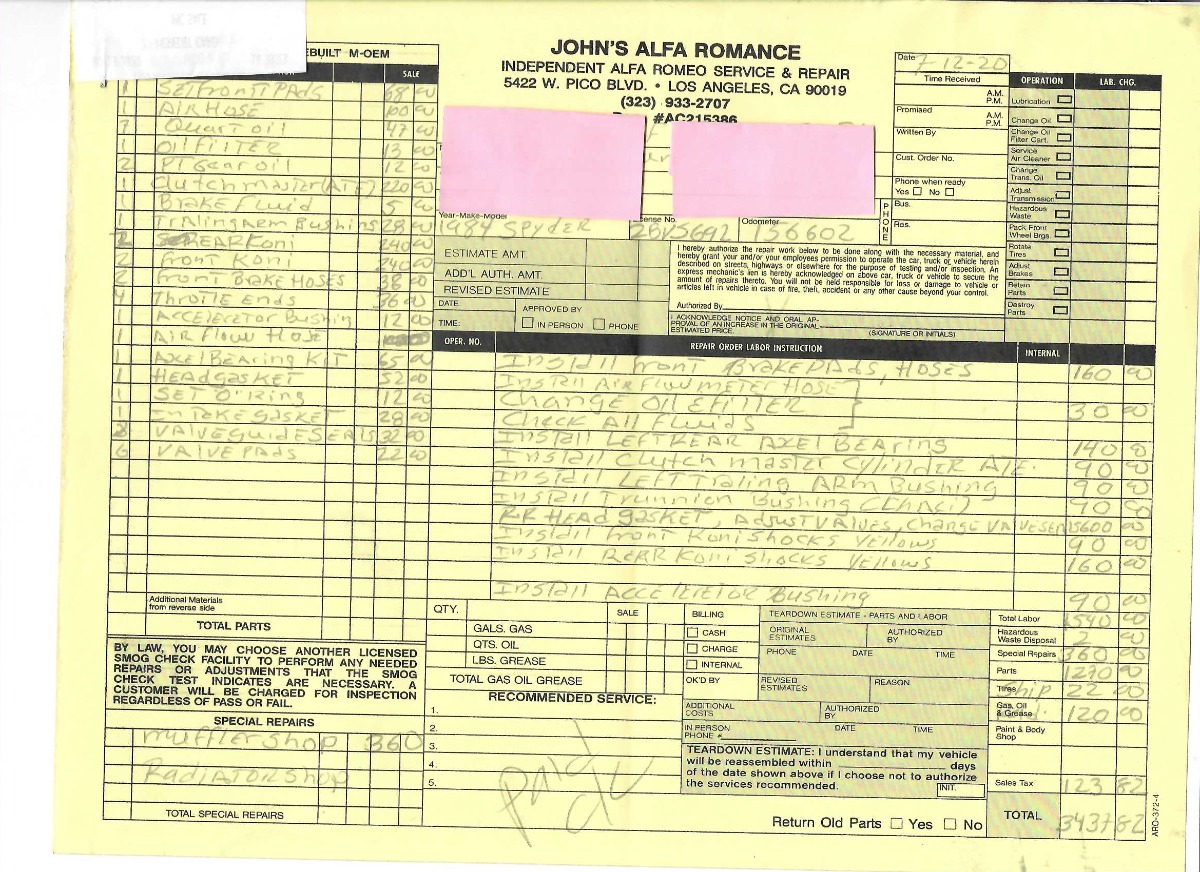 EBUILT M-OEM
SALE
1 SET Front PADS 68 00
1 AIR HOSE 100 00
7 Quart oil 47 00
1 OIL FILTER 13 00
2 PT Gear oil 12 00
1 Clutch master (ATE) 220 00
1 Brake Fluid 5 00
1 TralingArm Bushins 28 00
2 REAR Koni 240 00
2 Front Koni 240 00
2 Front Brake HOSES 38 00
4 Throtle Ends 36 00
1 ACCelerator Bushin 12 00
1 Air Flow Hose
1 AXel Bearing KIT 65 00
1 HEADgasket 52 00
1 SET O'Ring 12 00
1 Intake gasket 28 00
8 VALVE guide SEALS 32 00
6 VALVE PADS 22 00
Additional Materials
from reverse side
TOTAL PARTS
BY LAW, YOU MAY CHOOSE ANOTHER LICENSED
SMOG CHECK FACILITY TO PERFORM ANY NEEDED
REPAIRS OR ADJUSTMENTS THAT THE SMOG
CHECK TEST INDICATES ARE NECESSARY. A
CUSTOMER WILL BE CHARGED FOR INSPECTION
REGARDLESS OF PASS OR FAIL.
SPECIAL REPAIRS
muffler shop 360
RadiATOR shop
TOTAL SPECIAL REPAIRS
JOHN'S ALFA ROMANCE
INDEPENDENT ALFA ROMEO SERVICE & REPAIR
5422 W. PICO BLVD. • LOS ANGELES, CA 90019
(323) 933-2707
#AC215386
Year-Make-Model
1984 Spyder
cense No.
2BVS692
Odometer
156602
PHONE
Date 7-12-20
Time Received
A.M.
P.M.
Promised
A.M.
P.M.
Written By
Cust. Order No.
Phone when ready
Yes No
Bus.
Res.
OPERATION LAB. CHG.
Lubrication
Change Oil
Change Oil
Filter Cart.
Service
Air Cleaner
Change
Trans. Oil
Adjust
Transmission
Hazardous
Waste
Pack Front
Wheel Brgs.
Rotate
Tires
Adjust
Brakes
Retain
Parts
Destroy
Parts
ESTIMATE AMT.
ADD'L AUTH. AMT.
REVISED ESTIMATE
DATE
TIME:
APPROVED BY
IN PERSON PHONE
I hereby authorize the repair work below to be done along with the necessary material, and
hereby grant you and/or your employees permission to operate the car, truck or vehicle herein
described on streets, highways or elsewhere for the purpose of testing and/or inspection. An
express mechanic's lien is hereby acknowledged on above car, truck or vehicle to secure the
amount of repairs thereto. You will not be held responsible for loss or damage to vehicle or
articles left in vehicle in case of fire, theft, accident or any other cause beyond your control.
Authorized By
I ACKNOWLEDGE NOTICE AND ORAL AP-
PROVAL OF AN INCREASE IN THE ORIGINAL
ESTIMATED PRICE.
(SIGNATURE OR INITIALS)
OPER. NO. REPAIR ORDER LABOR INSTRUCTION INTERNAL
Install front BrakePADS, HOSES 160 00
Install AIR FLOW METER HOSE
Change OIL & FILTER 30 00
Check All Fluids
Install LEFT REAR AXEL BEARING 140 00
Install Clutch master Cylinder ATE. 90 00
Install LEFT Traling ARm Bushing 90 00
Install Trunnion Bushing 90 00
RR HEAD gasket, Adjust VALVES, Change VALVE SEALS 600 00
Install front Koni Shocks Yellows 90 00
Install REAR Koni Shocks Yellows 160 00
Install ACCeletor Bushing 90 00
QTY. SALE
GALS. GAS
QTS. OIL
LBS. GREASE
TOTAL GAS OIL GREASE
RECOMMENDED SERVICE:
1.
2.
3.
4.
5.
paid
BILLING
CASH
CHARGE
INTERNAL
OK'D BY
TEARDOWN ESTIMATE - PARTS AND LABOR
ORIGINAL
ESTIMATES
AUTHORIZED
BY
PHONE DATE TIME
REVISED
ESTIMATES
REASON
ADDITIONAL
COSTS
AUTHORIZED
BY
IN PERSON
PHONE #
DATE TIME
TEARDOWN ESTIMATE: I understand that my vehicle
will be reassembled within days
of the date shown above if I choose not to authorize
the services recommended.
INIT.
Return Old Parts Yes No
Total Labor 1540 00
Hazardous
Waste Disposal 2 00
Special Repairs 360 00
Parts 1270 00
Tires Ship 22 00
Gas, Oil
& Grease 120 00
Paint & Body
Shop
Sales Tax 123 82
TOTAL 3437 82
ARO-372-4